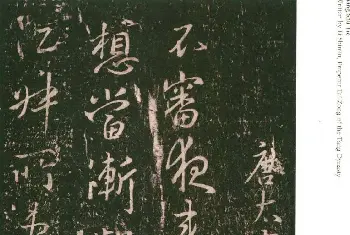 Written by Li Shimin, Emperor Tai Zong of the Tang Dynasty
唐太
不審夜来
想當漸
江叔所